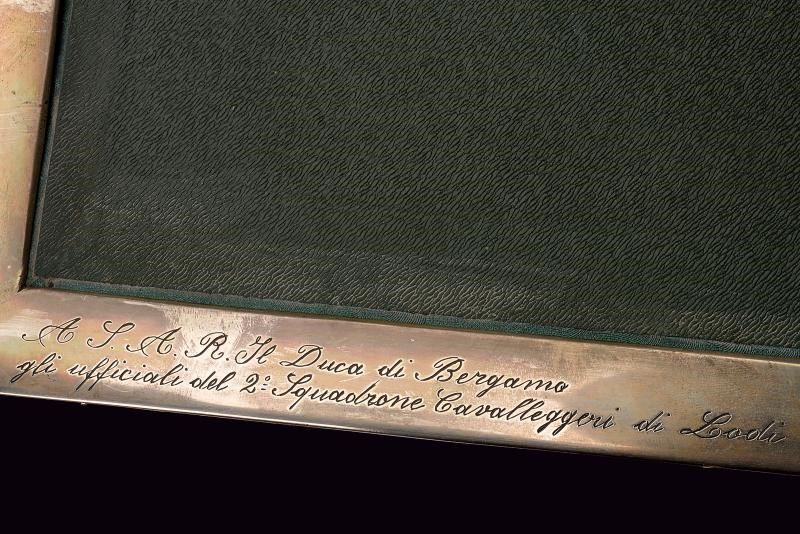 A S. A. R. Il Duca di Bergamo
gli ufficiali del 2º Squadrone Cavalleggeri di Lodi